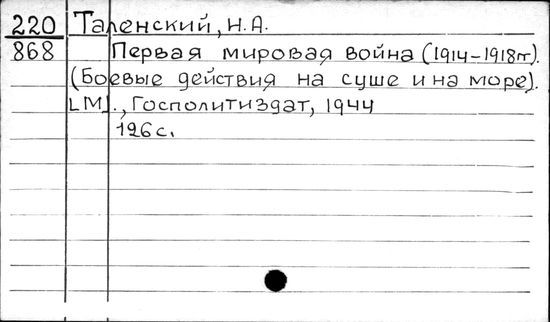 220 Таленский, Н.А.
868 Первая мировая война (1914-1918гг).
(Боевые действия на суше и на море).
[М]., Госполитиздат, 1944
126 с.